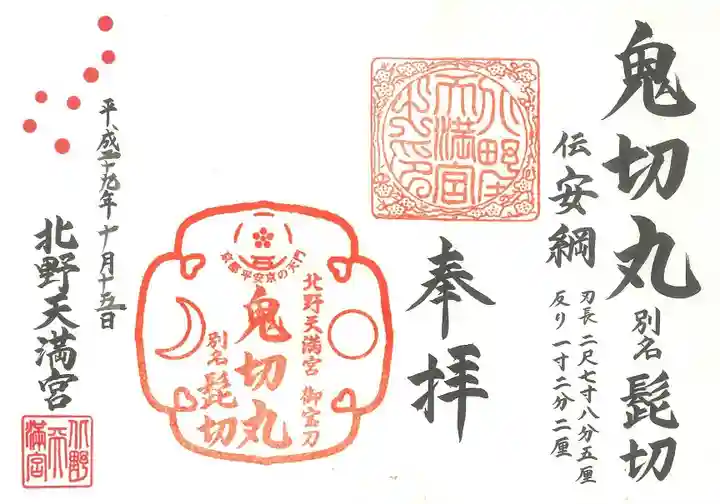 鬼切丸 別名 髭切
伝 安綱 刃長 二尺七寸八分五厘
反り 一寸二分二厘
北野天満宮
奉拝
北野天満宮 御宝刀
鬼切丸
別名 髭切
京都平安京の天門
平成二十九年十月十五日
北野天満宮
北野天満宮